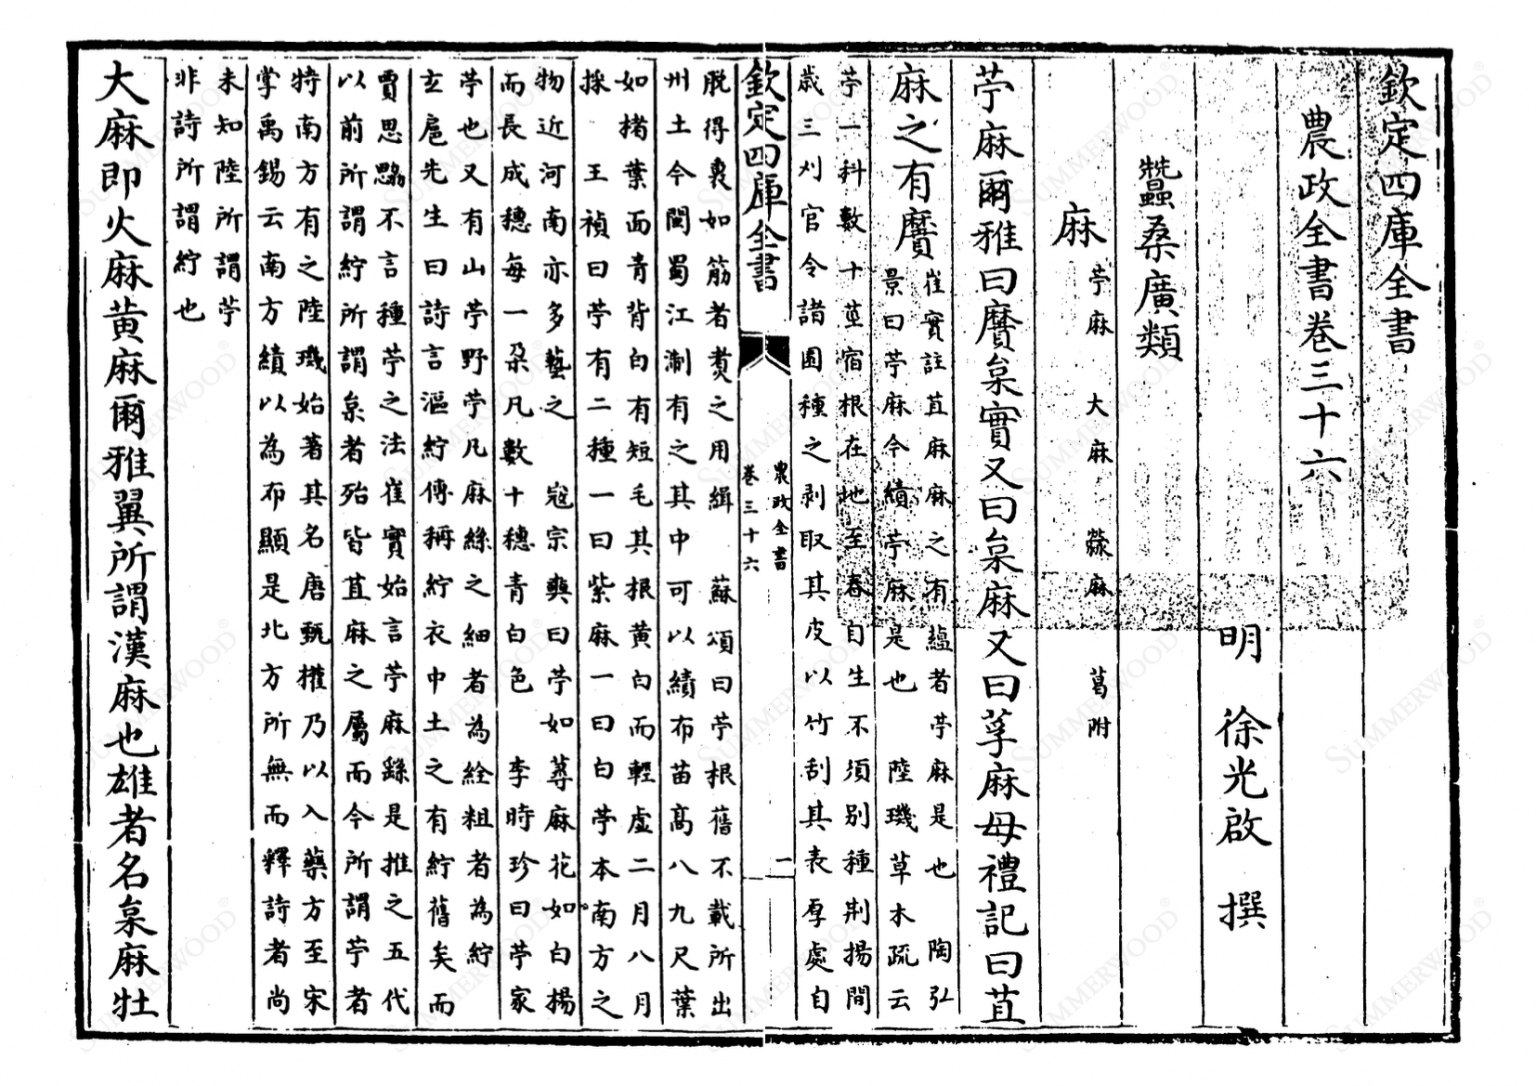 欽定四庫全書
農政全書卷三十六
明 徐光啟 撰
蠶桑廣類
麻 苧麻 大麻 檾麻 葛附
苧麻爾雅曰黂枲實又曰枲麻又曰莩麻母禮記曰苴
麻之有黂 崔實註苴麻麻之有蘊者苧麻是也 陶弘
景曰苧麻今績苧麻是也 陸璣草木疏云
苧一科數十莖宿根在地至春自生不須别種荆揚間
歲三刈官令諸園種之剥取其皮以竹刮其表厚處自
欽定四庫全書
農政全書
卷三十六
一
脫得裏如筋者煑之用緝 蘇頌曰苧根舊不載所出
州土今閩蜀江淛有之其中可以績布苗高八九尺葉
如楮葉面青背白有短毛其根黄白而輕虚二月八月
採 王禎曰苧有二種一曰紫麻一曰白苧本南方之
物近河南亦多藝之 寇宗奭曰苧如蕁麻花如白楊
而長成穗每一朶凡數十穗青白色 李時珍曰苧家
苧也又有山苧野苧凡麻絲之細者為絟粗者為紵
玄扈先生曰詩言漚紵傳稱紵衣中土之有紵舊矣而
賈思勰不言種苧之法崔實始言苧麻繇是推之五代
以前所謂紵所謂枲者殆皆苴麻之屬而今所謂苧者
特南方有之陸璣始著其名唐甄權乃以入藥方至宋
掌禹錫云南方績以為布顯是北方所無而釋詩者尚
未知陸所謂苧
非詩所謂紵也
大麻即火麻黄麻爾雅翼所謂漢麻也雄者名枲麻牡
SUMMERWOOD